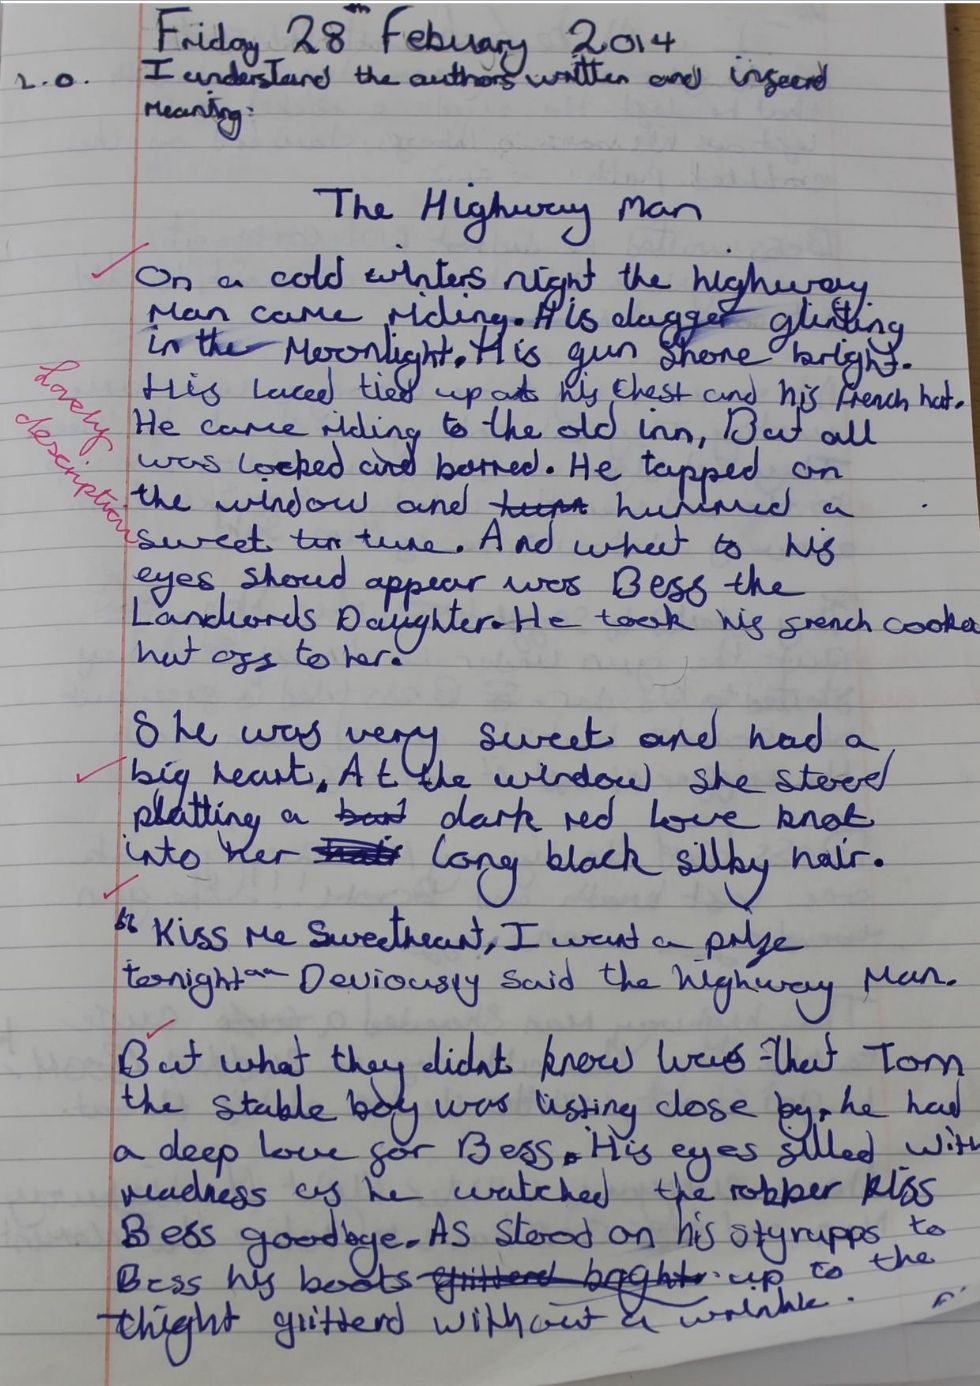 Friday 28th Febuary 2014
L.O. I understand the authors written and inferd
meaning:
The Highway Man
On a cold winters night the highway
Man came riding. His dagger glinting
in the Moonlight. His gun shone bright.
His laced tied up at his chest and his french hat.
He came riding to the old inn, But all
was locked and barred. He tapped on
the window and hummed a
sweet tune. And what to his
eyes shoud appear was Bess the
Landlords Daughter. He took his french cocked
hat off to her.
Lovely
description
She was very sweet and had a
big heart. At the window she stood
platting a dark red love knot
into her long black silky hair.
"Kiss me Sweetheart, I want a prize
tonight" Deviously said the highway Man.
But what they didnt know was that Tom
the stable boy was listing close by, he had
a deep love for Bess. His eyes filled with
madness as he watched the robber kiss
Bess goodbye. As stood on his styrupps to
Bess his boots up to the
thight glitterd without a wrinkle.